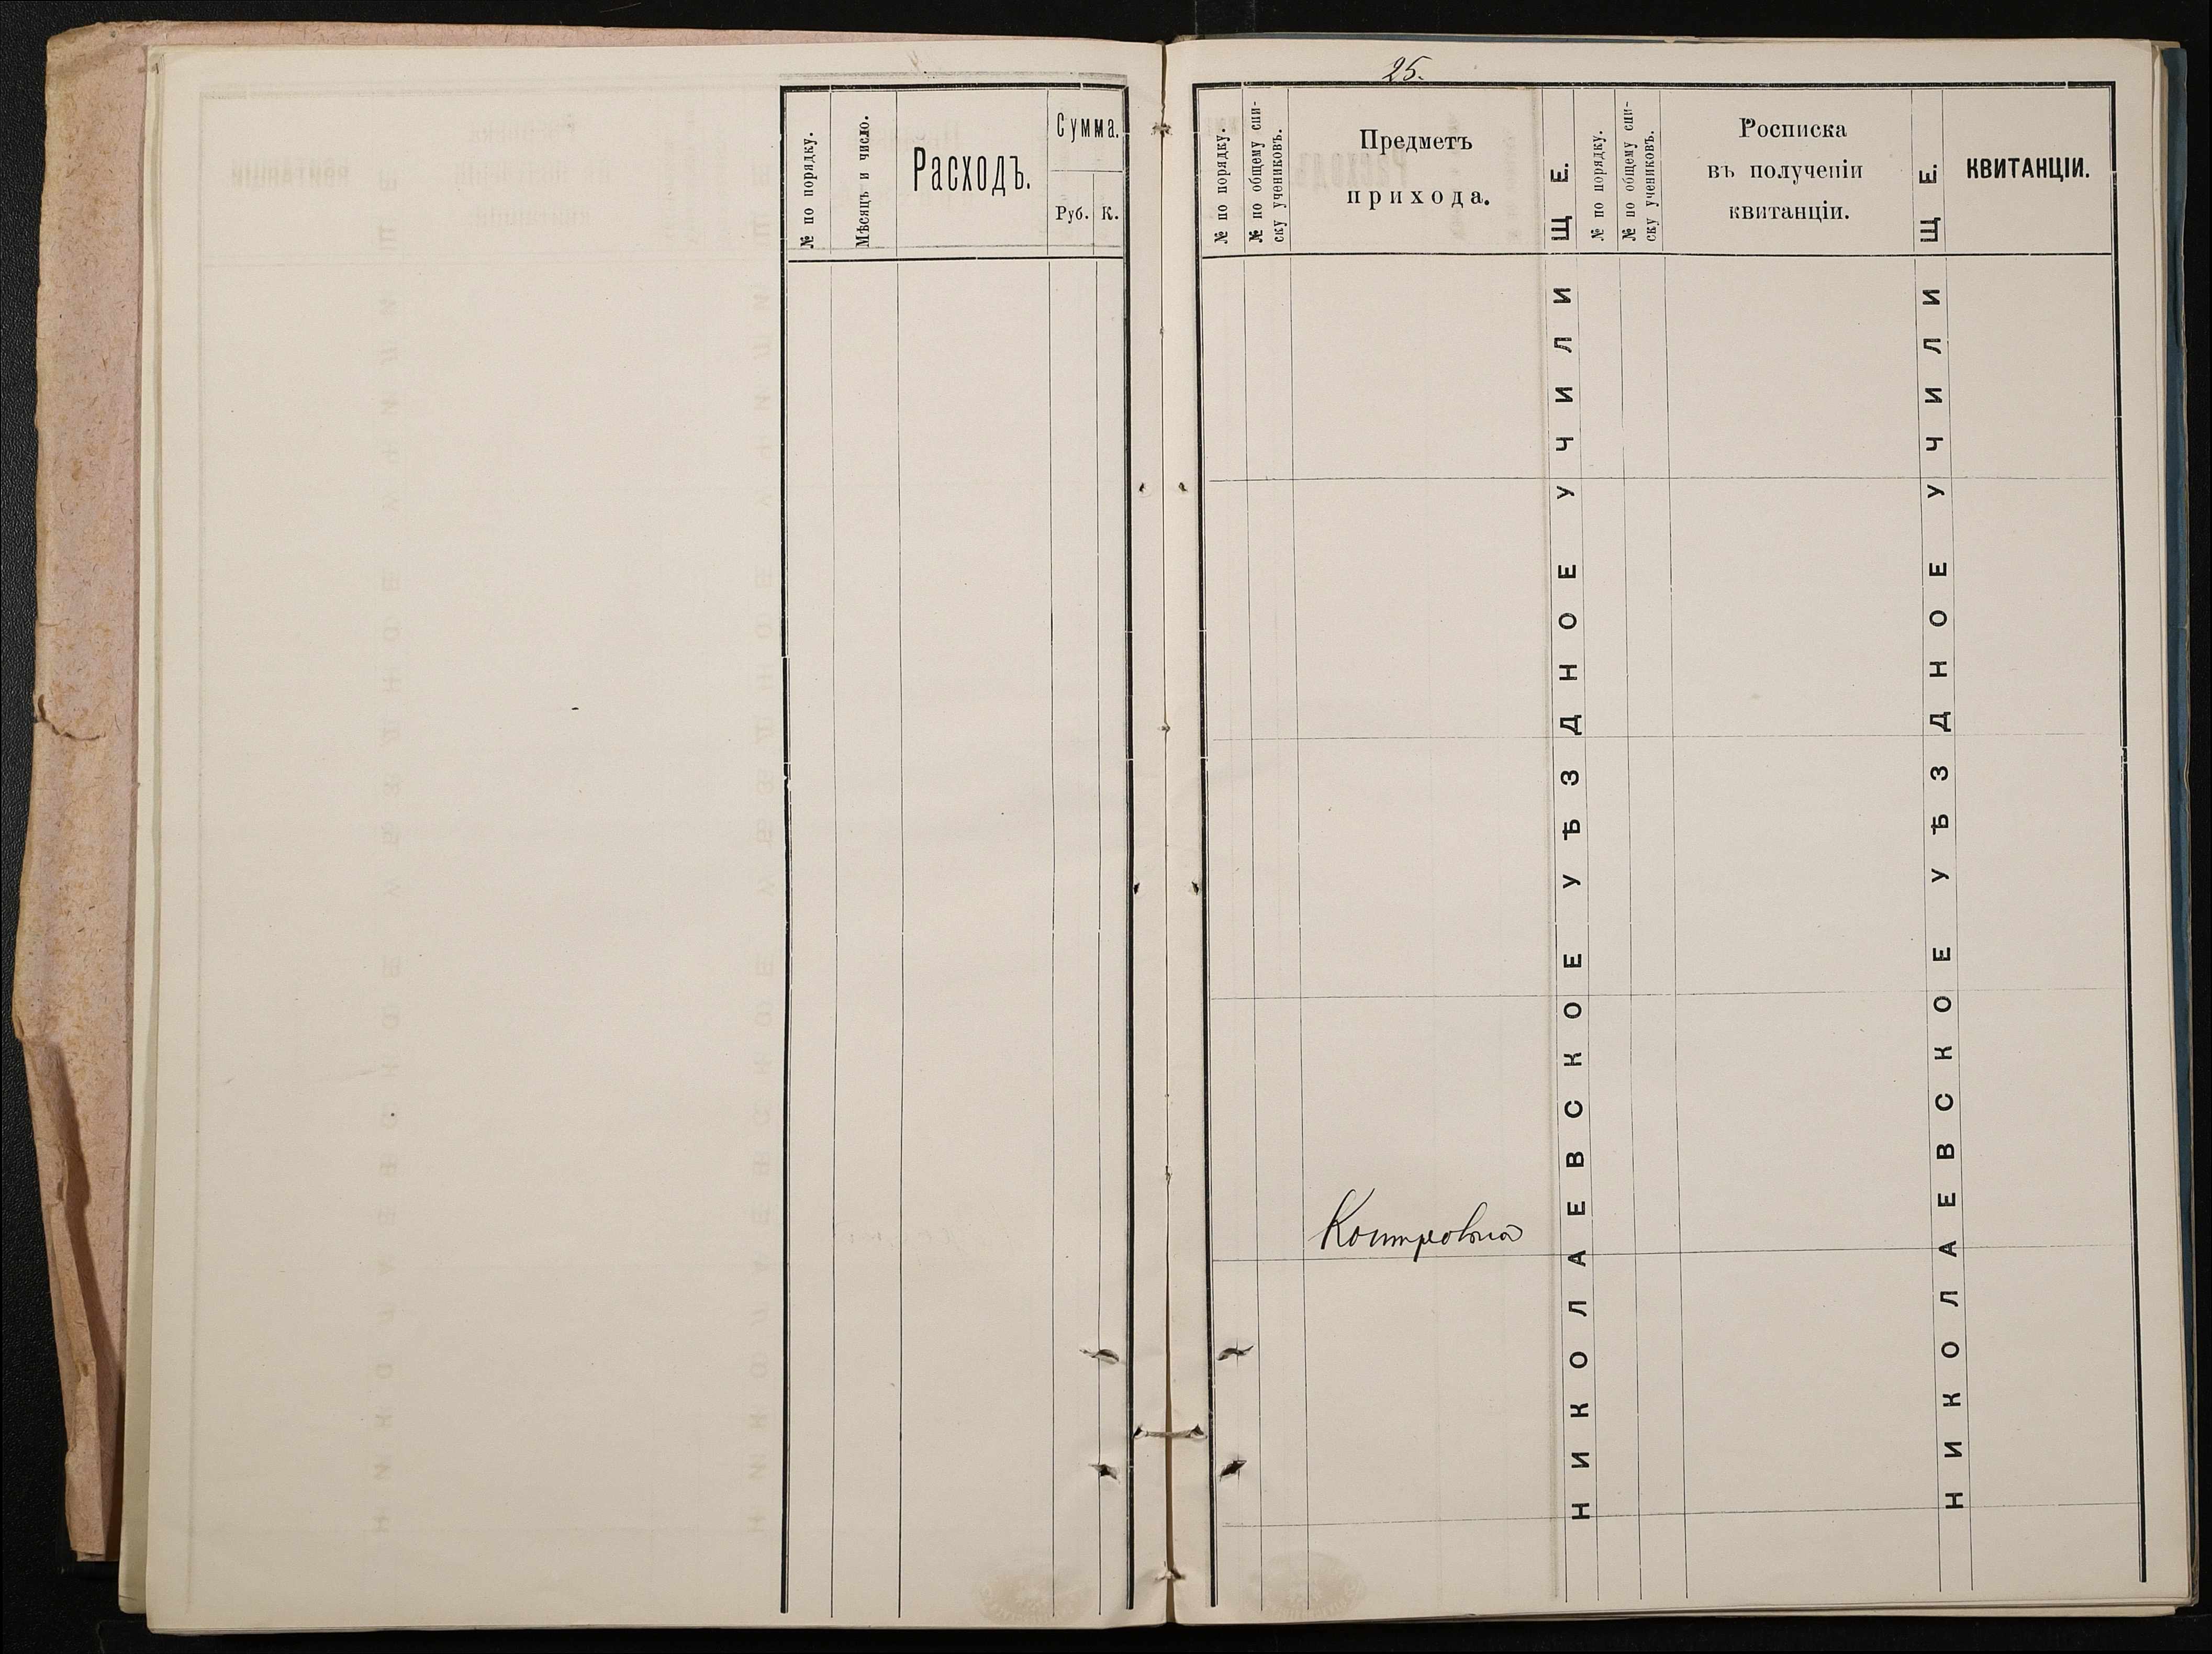 № по порядку.
Мѣсяцъ и число.
Расходъ.
Сумма.
Руб. К.
25.
№ по порядку.
№ по общему спи-
ску учениковъ.
Предметъ
прихода.
НИКОЛАЕВСКОЕ УѢЗДНОЕ УЧИЛИЩЕ.
№ по порядку.
№ по общему спи-
ску учениковъ.
Росписка
въ полученіи
квитанціи.
НИКОЛАЕВСКОЕ УѢЗДНОЕ УЧИЛИЩЕ.
КВИТАНЦІИ.